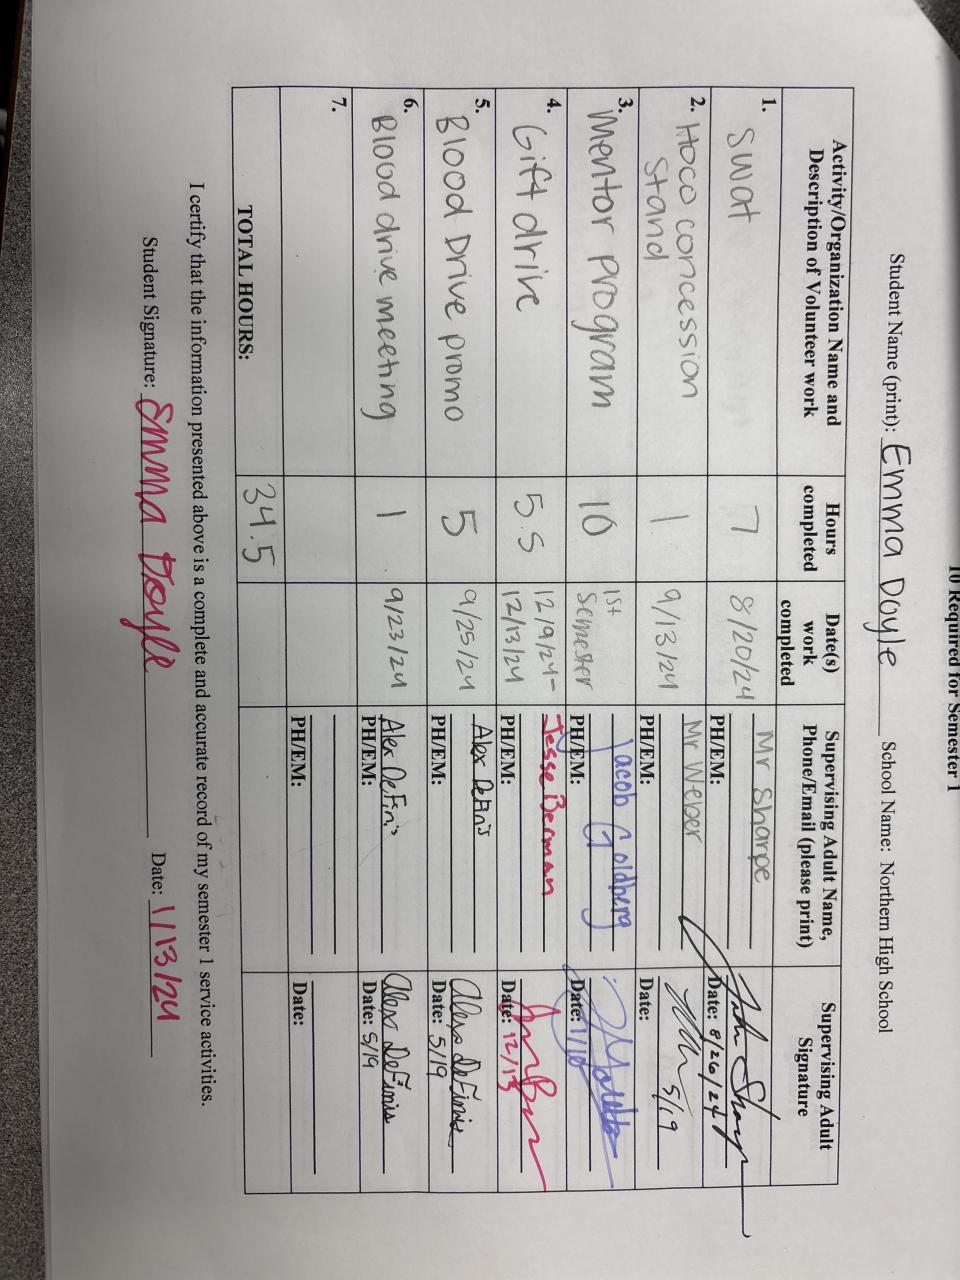 10 Required for Semester 1
Student Name (print): Emma Doyle School Name: Northern High School
Activity/Organization Name and Description of Volunteer work
Hours completed
Date(s) work completed
Supervising Adult Name, Phone/Email (please print)
Supervising Adult Signature
1. Swat
7
8/20/24
Mr Sharpe
PH/EM:
Date: 8/26/24
2. Hoco concession
Stand
1
9/13/24
Mr Weber
PH/EM:
5/19
Date:
3. Mentor program
10
1st
Semester
Jacob Goldberg
PH/EM:
Date: 1/10
4. Gift drive
5.5
12/9/24-
12/13/24
Jesse Berman
PH/EM:
Date: 12/13
5. Blood Drive promo
5
9/25/24
Alex DeFinis
PH/EM:
Alex DeFinis
Date: 5/19
6. Blood drive meeting
1
9/23/24
Alex DeFinis
PH/EM:
Alex DeFinis
Date: 5/19
7.
PH/EM:
Date:
TOTAL HOURS:
34.5
I certify that the information presented above is a complete and accurate record of my semester 1 service activities.
Student Signature: Emma Doyle Date: 1/13/24